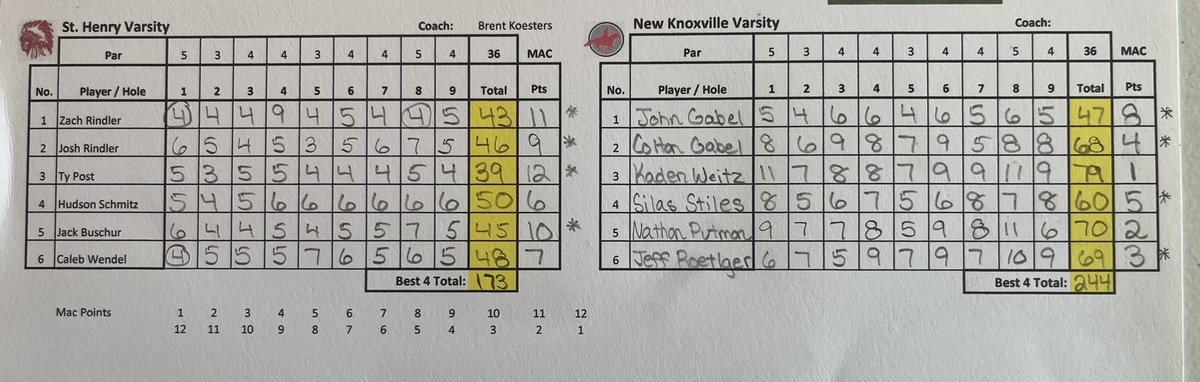 St. Henry Varsity Coach: Brent Koesters
Par 5 3 4 4 3 4 4 5 4 36 MAC
No. Player / Hole 1 2 3 4 5 6 7 8 9 Total Pts
1 Zach Rindler 4 4 4 9 4 5 4 4 5 43 11 *
2 Josh Rindler 6 5 4 5 3 5 6 7 5 46 9 *
3 Ty Post 5 3 5 5 4 4 4 5 4 39 12 *
4 Hudson Schmitz 5 4 5 6 6 6 6 6 6 50 6
5 Jack Buschur 6 4 4 5 4 5 5 7 5 45 10 *
6 Caleb Wendel 4 5 5 5 7 6 5 6 5 48 7
Best 4 Total: 173
Mac Points 1 2 3 4 5 6 7 8 9 10 11 12
12 11 10 9 8 7 6 5 4 3 2 1
New Knoxville Varsity Coach:
Par 5 3 4 4 3 4 4 5 4 36 MAC
No. Player / Hole 1 2 3 4 5 6 7 8 9 Total Pts
1 John Gabel 5 4 6 6 4 6 5 6 5 47 8 *
2 Colton Gabel 8 6 9 8 7 9 5 8 8 68 4 *
3 Kaden Weitz 11 7 8 8 7 9 9 11 9 79 1
4 Silas Stiles 8 5 6 7 5 6 8 7 8 60 5 *
5 Nathan Putman 9 7 7 8 5 9 8 11 6 70 2
6 Jeff Roetlger 6 7 5 9 7 9 7 10 9 69 3 *
Best 4 Total: 244